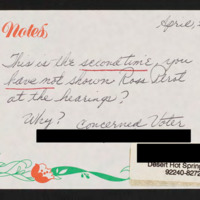 Notes
April,
This is the second time, you
have not shown Ross Perot
at the hearings?
Why? Concerned Voter
Desert Hot Spring
92240-827